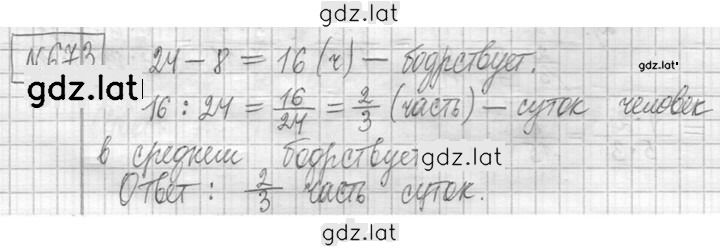 gdz.lat
№673
24 - 8 = 16 (ч) - бодрствует.
gdz.lat
gdz.lat
16 : 24 = 16/24 = 2/3 (часть) - суток человек
в среднем бодрствует
gdz.lat
Ответ: 2/3 часть суток.
gdz.lat